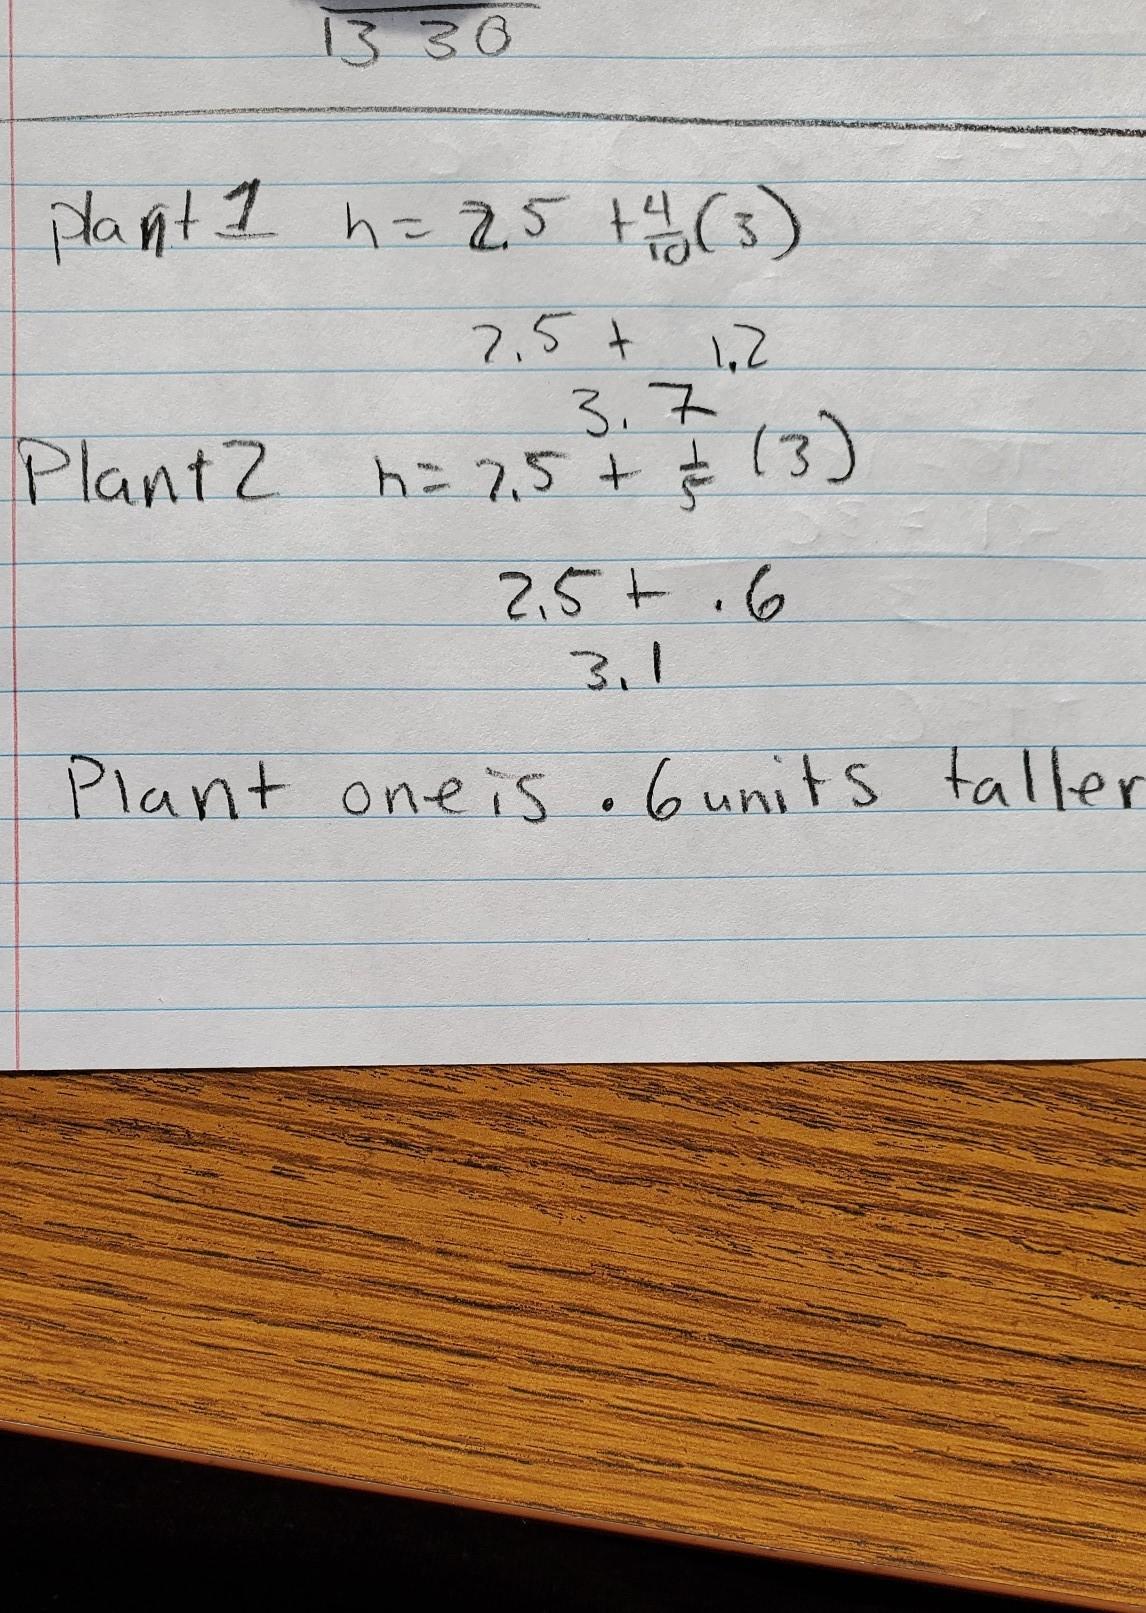 13 30
plant 1 h = 2.5 + 4/10 (3)
2.5 + 1.2
3.7
Plant 2 h = 2.5 + 1/5 (3)
2.5 + .6
3.1
Plant one is .6 units taller